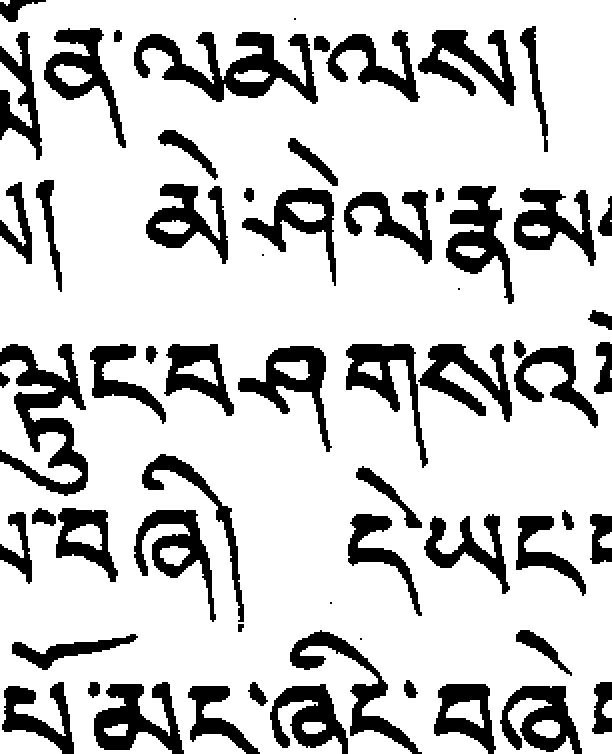 སྨོན་ལམ་ལས།
། མེ་ཤེལ་རྣམ
ལྟུང་བཤགས་འ
་བཞི། དེ་ཡང་
པོ་མང་ཞིང་བཞེ